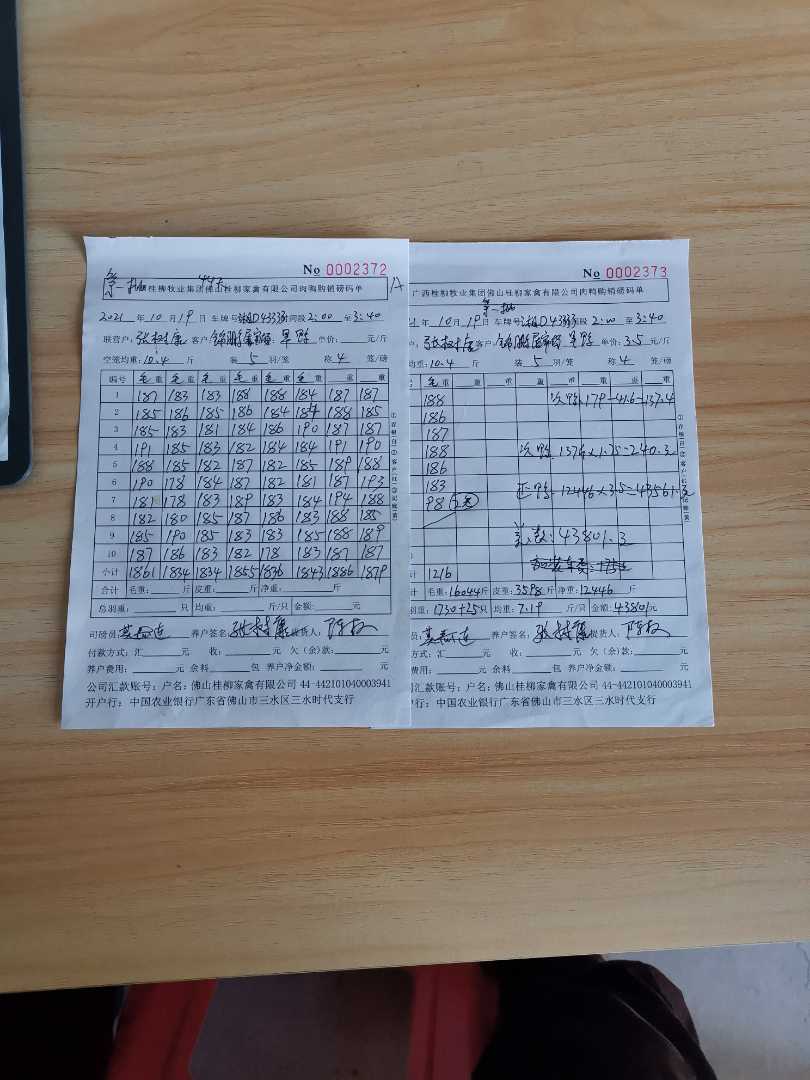 No 0002372
桂柳牧业集团佛山桂柳家禽有限公司肉鸭购销磅码单
2021 年 10 月 19 日 车牌号 间段 2:00 至 3:40
联营户: 客户: 单价: 元/斤
空笼均重: 10.4 斤 装 5 羽/笼 称 4 笼/磅
编号 毛重 毛重 毛重 毛重 毛重 毛重 重 重
1 187 183 183 188 188 184 187 187
2 185 186 185 186 184 184 188 185
3 185 183 181 184 186 190 187 187
4 191 185 183 182 184 184 191 190
5 188 185 182 187 182 185 189 188
6 190 178 184 187 182 181 187 193
7 181 178 183 189 183 184 194 188
8 182 180 185 187 186 183 188 185
9 185 190 185 183 183 185 188 189
10 187 186 183 182 178 183 187 187
小计 1861 1834 1834 1855 1836 1843 1886 1879
合计 毛重: 斤 皮重: 斤 净重: 斤
总羽重: 只 均重: 斤/只 金额: 元
司磅员: 养户签名: 提货人:
付款方式: 汇 元 收: 元 欠(余)款: 元
养户费用: 元 余料 包 养户净金额: 元
公司汇款账号: 户名: 佛山桂柳家禽有限公司 44-442101040003941
开户行: 中国农业银行广东省佛山市三水区三水时代支行
No 0002373
广西桂柳牧业集团佛山桂柳家禽有限公司肉鸭购销磅码单
年 10 月 19 日 车牌号 段 2:00 至 3:40
客户: 单价: 3.5 元/斤
均重: 10.4 斤 装 5 羽/笼 称 4 笼/磅
号 毛重 重 重 重 重 重 重 重
188 次鸭 179-41.6=137.4
186
187
188 次鸭 137.4×1.75=240.3元
186
183 正鸭 12446×3.5=43561元
98
款: 43801.3
计 1216
毛重: 16044 斤 皮重: 3598 斤 净重: 12446
羽重: 1730+25 只 均重: 7.19 斤/只 金额: 43801 元
员: 养户签名: 提货人:
方式: 汇 元 收: 元 欠(余)款: 元
费用: 元 余料 包 养户净金额: 元
汇款账号: 户名: 佛山桂柳家禽有限公司 44-442101040003941
户行: 中国农业银行广东省佛山市三水区三水时代支行